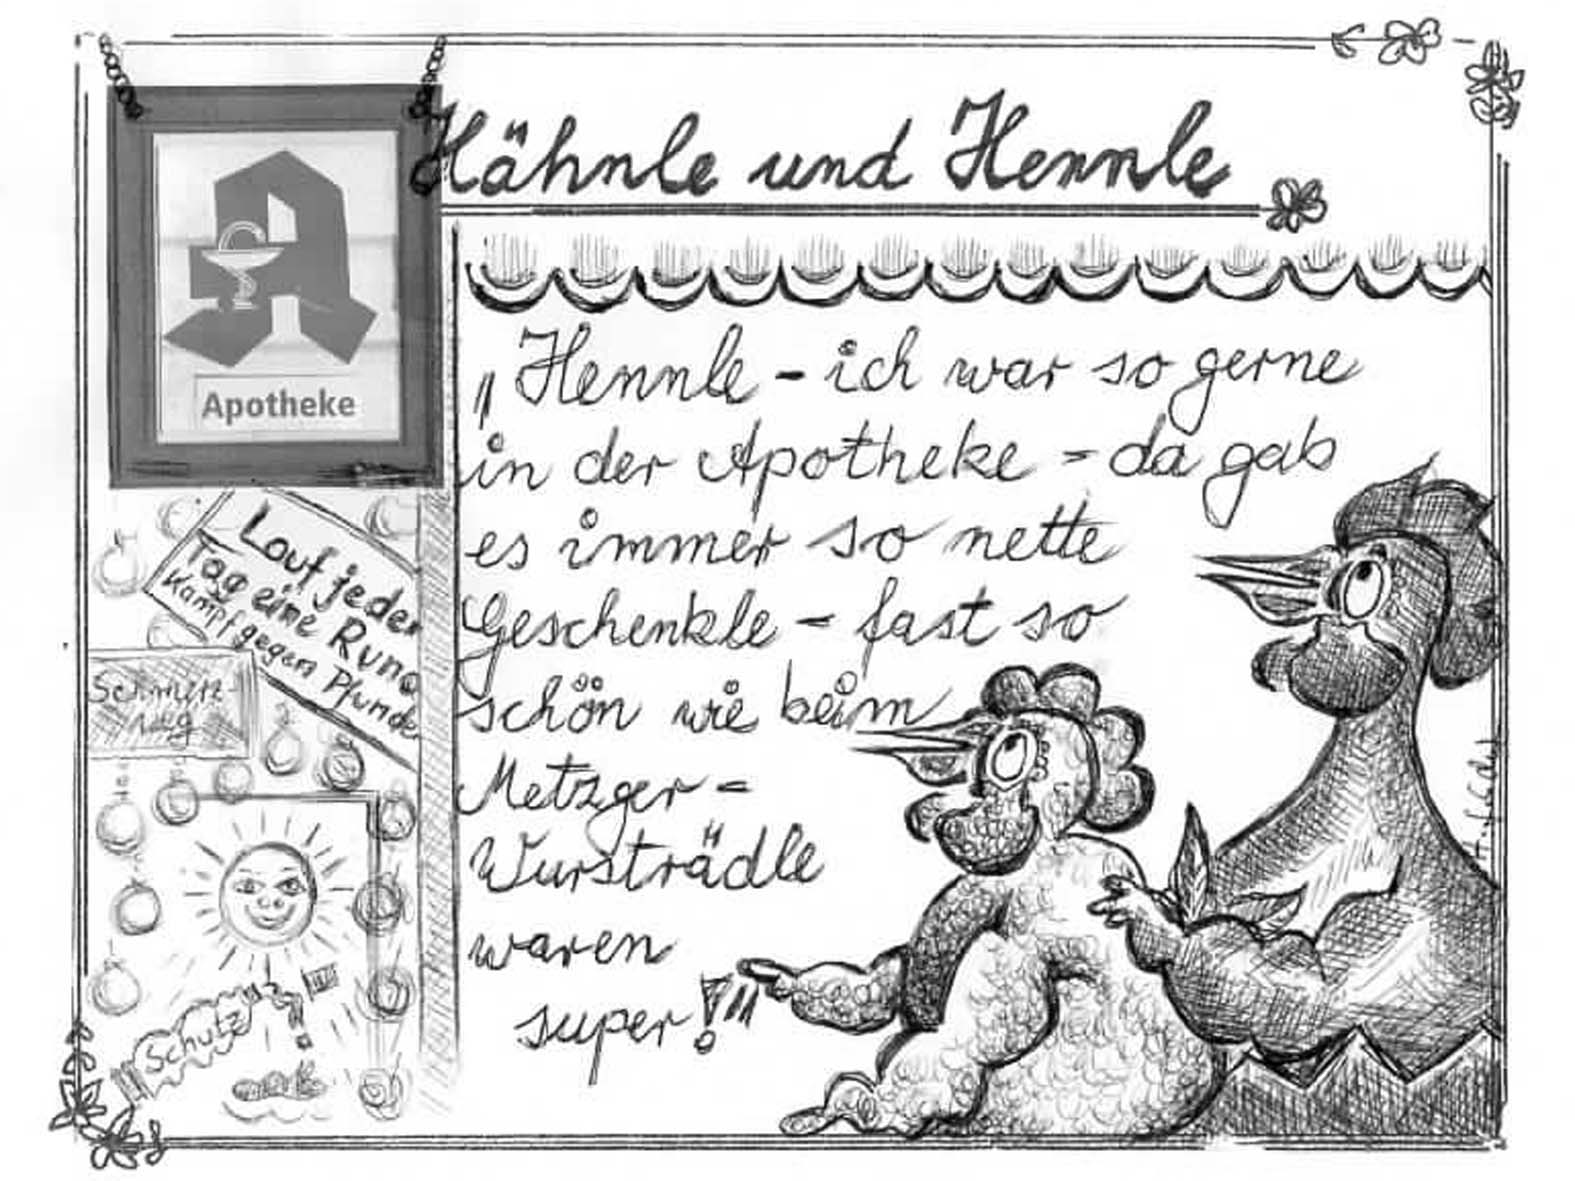 Hähnle und Hennle
Apotheke
„Hennle - ich war so gerne
in der Apotheke - da gab
es immer so nette
Geschenkle - fast so
schön wie beim
Metzger -
Wursträdle
waren
super!"
Lauf jeden
Tag eine Runde
Kampf gegen Pfunde
Schmerz-
weg
Schutz